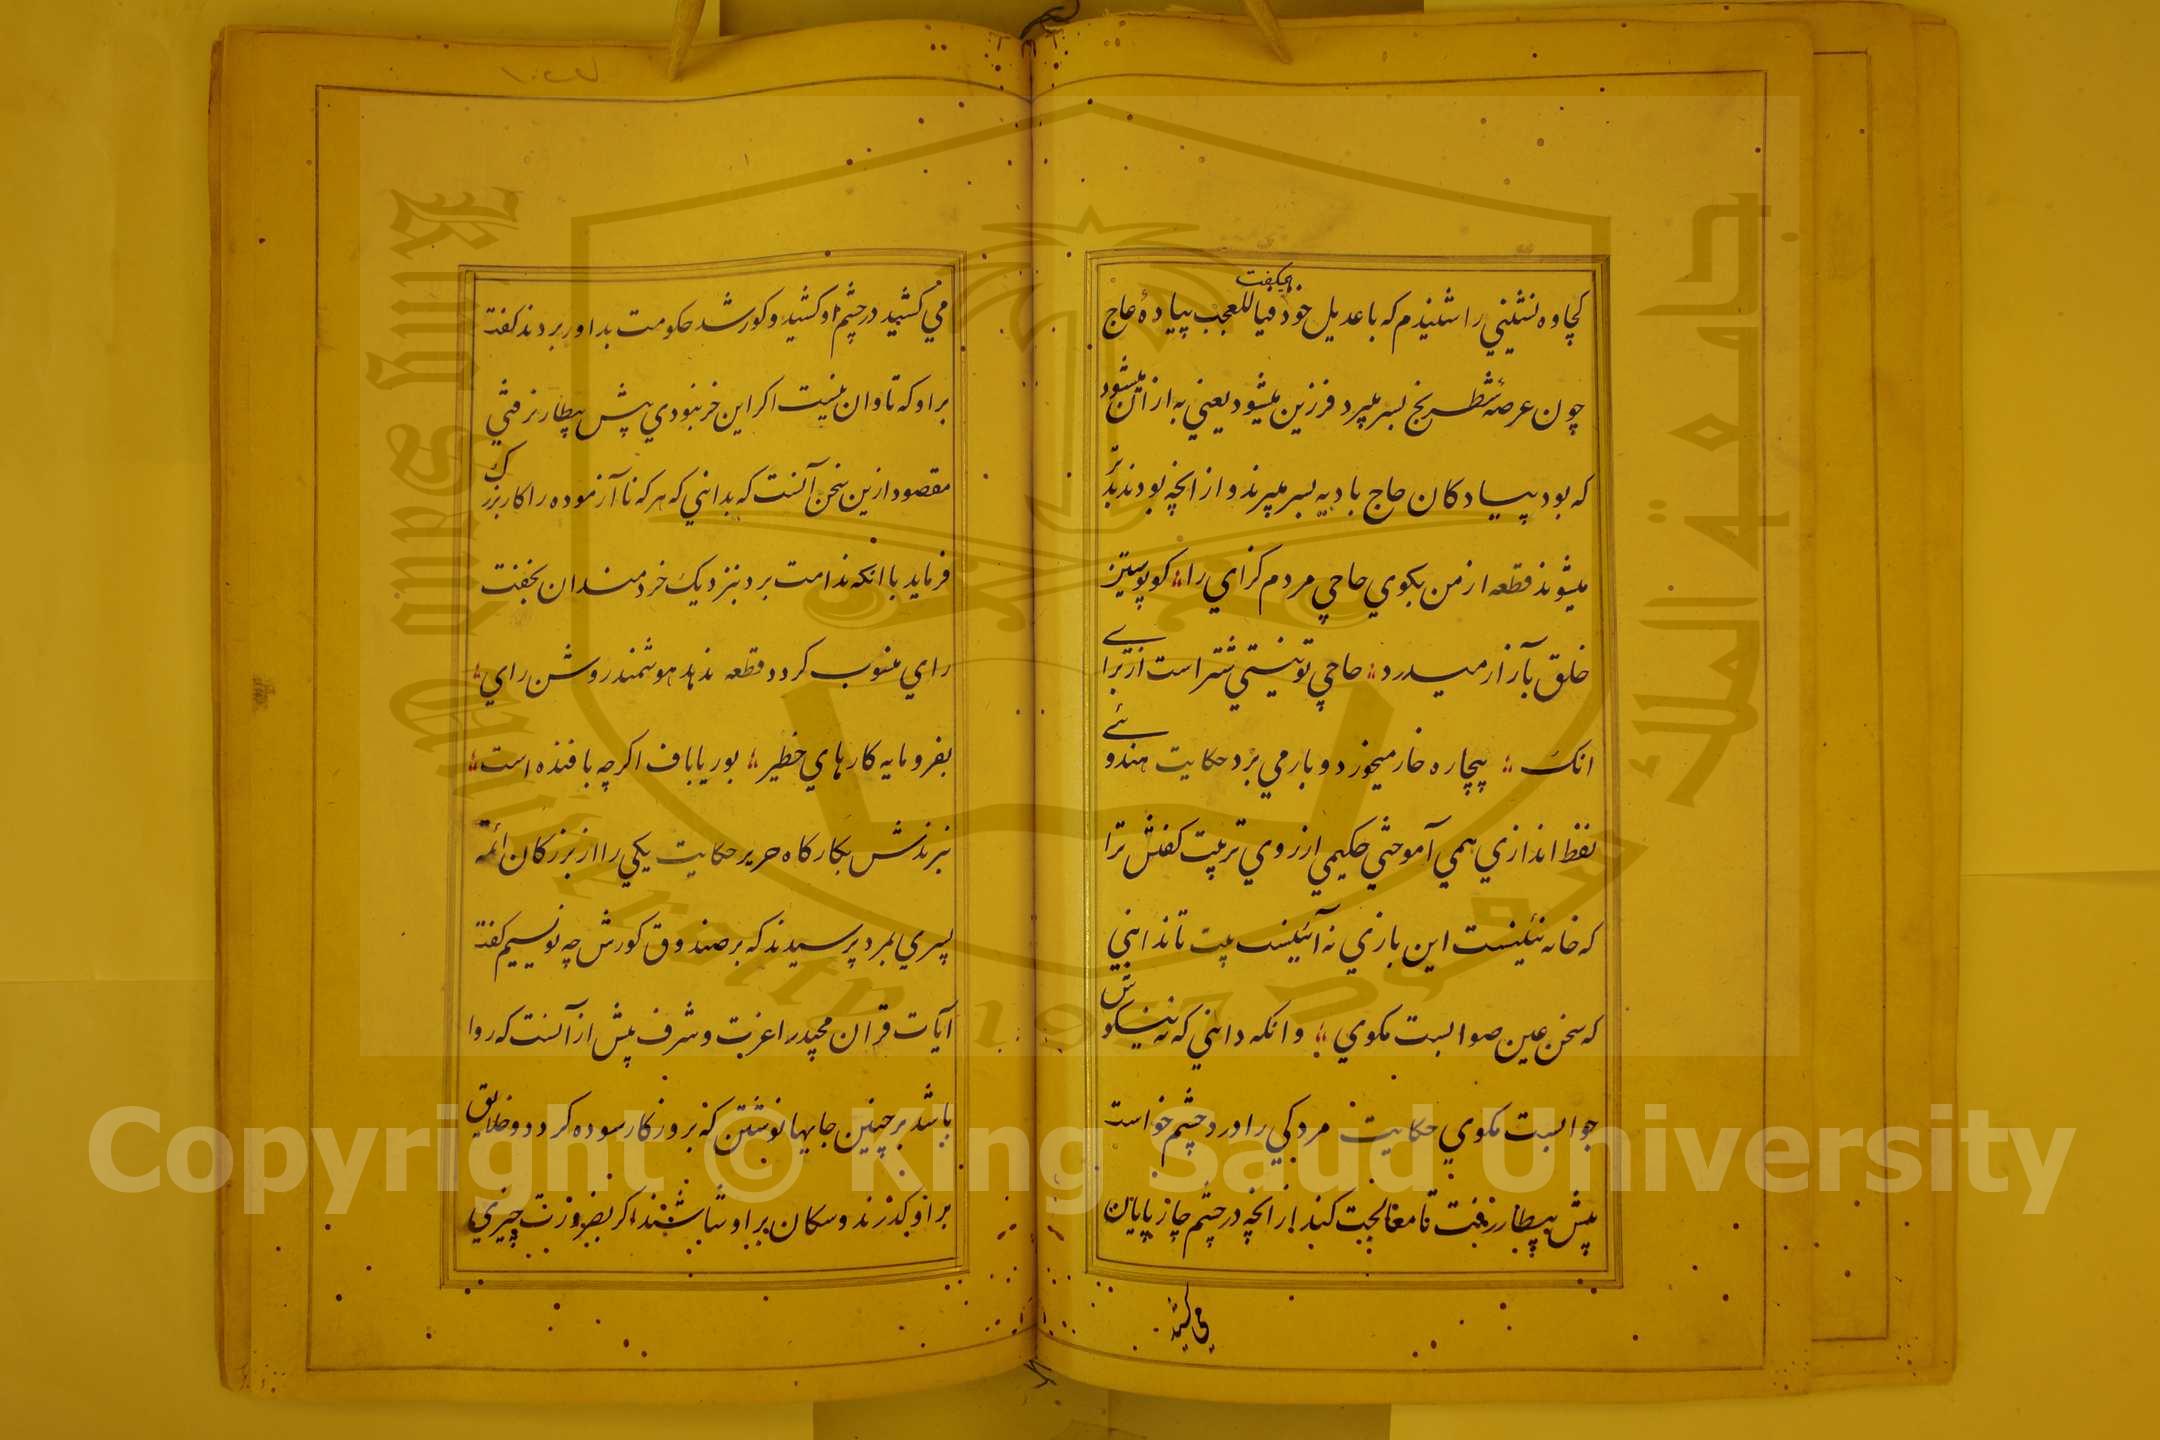 کجاوه نشیني را شنیدم که با عدیل خود میگفت یاللعجب پیادهٔ عاج
چون عرصهٔ شطرنج بسر میبرد فرزین میشود یعني به از آن میشود
که بود پیادکان حاج بادیه بسر میبرند و از انچه بودند بدتر
میشوند قطعه از من بکوي حاجي مردم کزاي را کو پوستین
خلق بآزار میدرد حاجي تو نیستي شتر است از براے
انک بیچاره خار میخورد و بار مي برد حکایت هندوئے
نفط اندازي همي آموختي حکیمي از روي تربیت کفتش ترا
که خانه نئینست این بازي نه آئینست بیت تا نداني
که سخن عین صوابست مکوي وانکه داني که نه نیکوش
جوابست مکوي حکایت مردکي را درد چشم خواست
پیش بیطار رفت تا معالجت کند از انچه در چشم چارپایان
مي کشید
مي کشید در چشم او کشید و کور شد حکومت بداور بردند کفت
براو که تاوان نیست اکر این خر نبودي پیش بیطار نرفتي
مقصود ازین سخن آنست که بداني که هر که نا آزموده را کار بزرک
فرماید با انکه ندامت برد نزدیک خردمندان بخفت
راي منسوب کردد قطعه ندهد هوشمند روشن راي
بفرومایه کارهاي خطیر بوریا باف اکرچه بافنده است
نبرندش بکارکاه حریر حکایت یکي را از بزرکان ائمه
پسري بمرد پرسیدند که بر صندوق کورش چه نویسیم کفت
آیات قرآن مجید را عزت و شرف بیش از آنست که روا
باشد بر چنین جایها نوشتن که بروزکار سوده کردد و خلایق
براو کذرند و سکان براو شاشند اکر بضرورت چیزي
King Saud University
1957
جامعة الملك سعود
Copyright © King Saud University